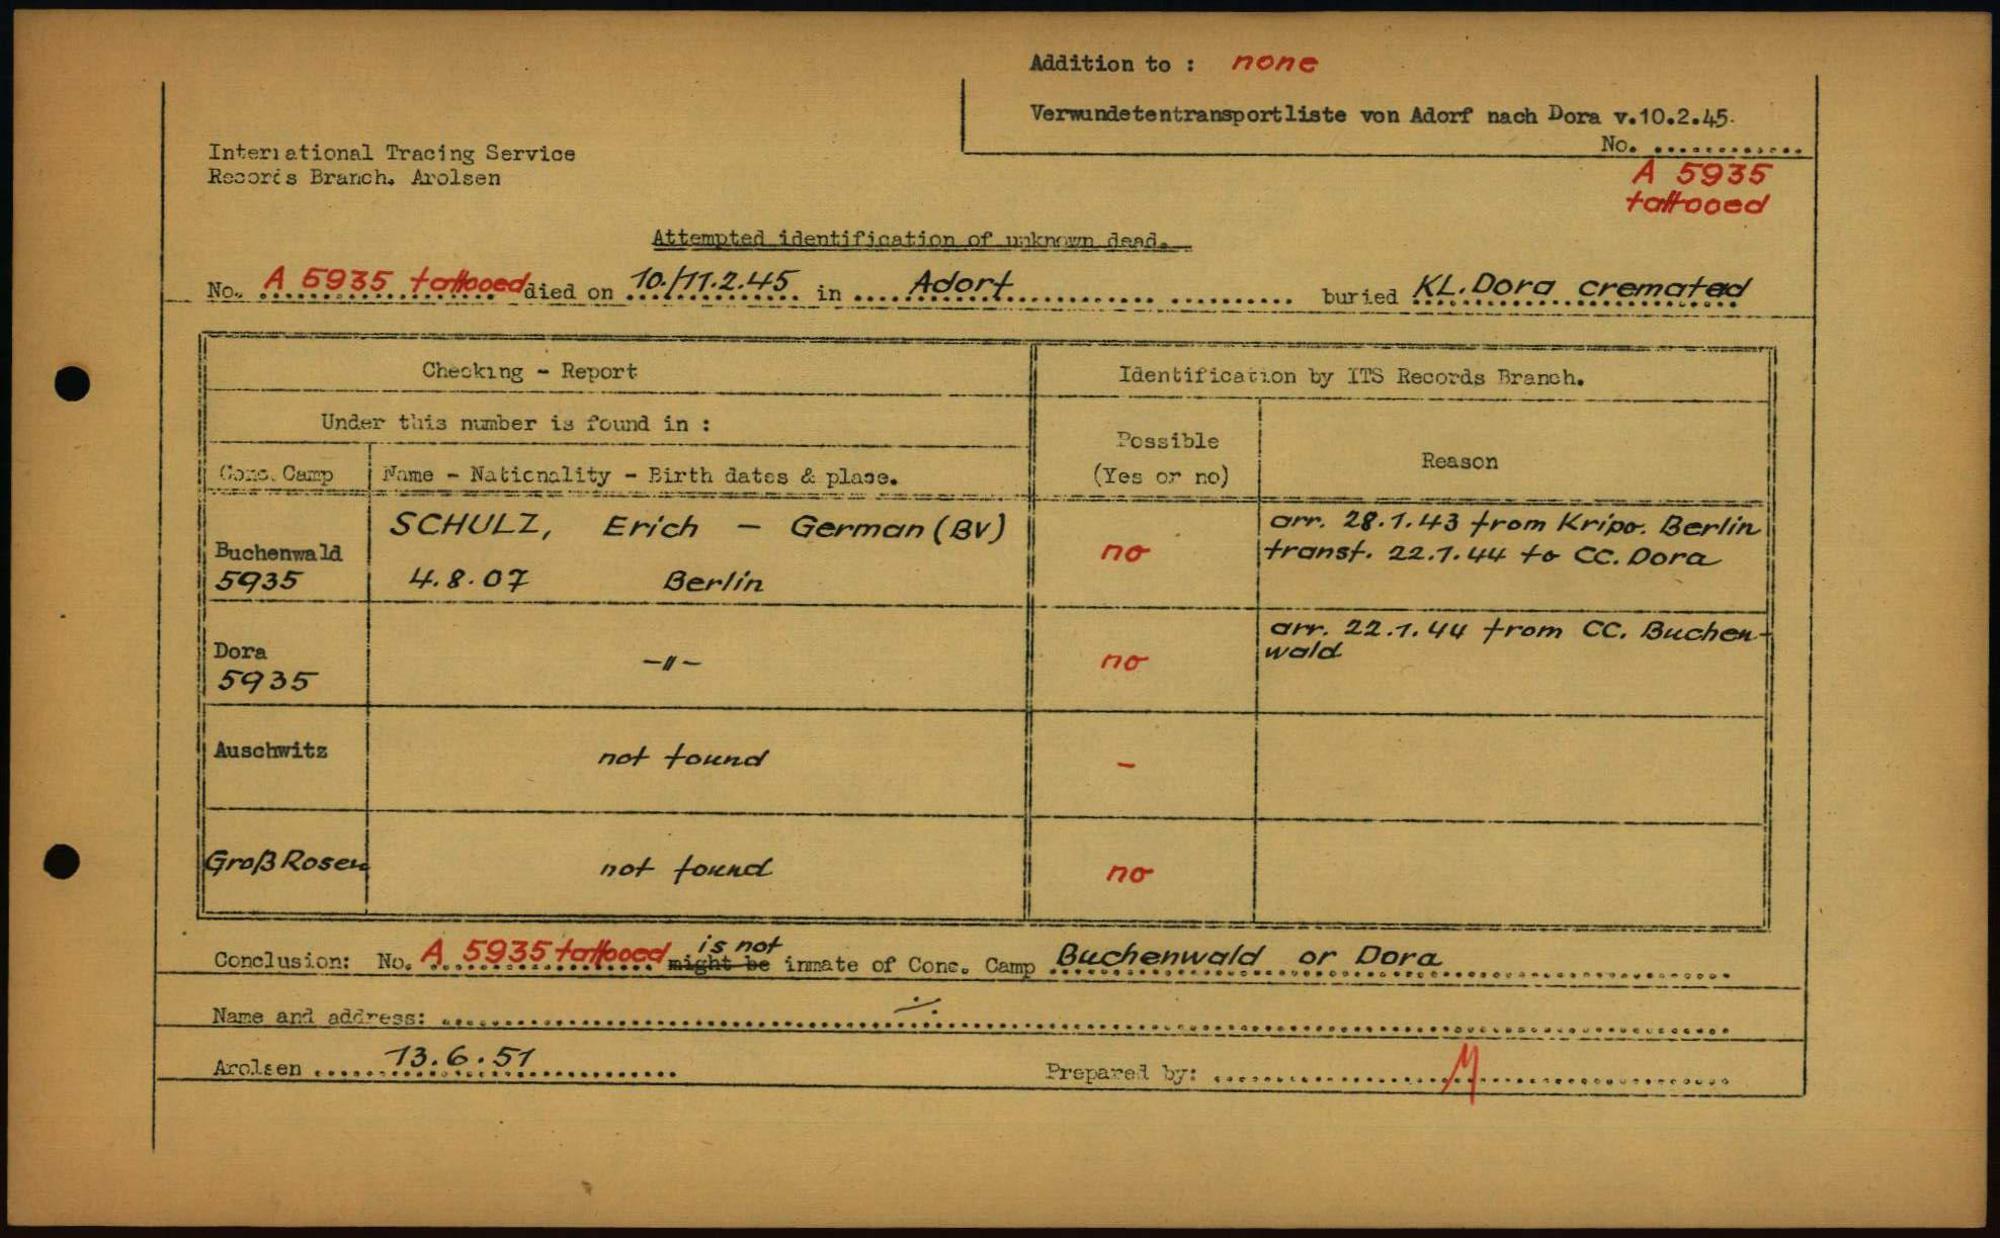 Addition to : none
Verwundetentransportliste von Adorf nach Dora v.10.2.45.
No. ............
A 5935
tattooed
International Tracing Service
Records Branch. Arolsen
Attempted identification of unknown dead.
No. A 5935 tattooed died on 10./11.2.45 in Adorf buried KL. Dora cremated
Checking - Report
Identification by ITS Records Branch.
Under this number is found in :
Conc. Camp
Name - Nationality - Birth dates & place.
Possible
(Yes or no)
Reason
Buchenwald
5935
SCHULZ, Erich - German (BV)
4.8.07 Berlin
no
arr. 28.1.43 from Kripo. Berlin
transf. 22.1.44 to CC. Dora
Dora
5935
-"-
no
arr. 22.1.44 from CC. Buchen-
wald
Auschwitz
not found
-
Groß Rosen
not found
no
Conclusion: No. A 5935 tattooed might be is not inmate of Conc. Camp Buchenwald or Dora
Name and address: ./.
Arolsen 13.6.51
Prepared by: